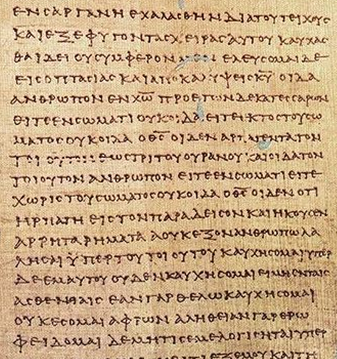 ΕΝΣΑΡΓΑΝΗΕΧΑΛΑΣΘΗΝΔΙΑΤΟΥΤΕΙΧΟΥΣ
ΚΑΙΕΞΕΦΥΓΟΝΤΑΣΧΕΙΡΑΣΑΥΤΟΥΚΑΥΧΑΣ
ΘΑΙΔΕΙΟΥΣΥΜΦΕΡΟΝΕΛΕΥΣΟΜΑΙΔΕ
ΕΙΣΟΠΤΑΣΙΑΣΚΑΙΑΠΟΚΑΛΥΨΕΙΣΚΥ ΟΙΔΑ
ΑΝΘΡΩΠΟΝΕΝΧΩ ΠΡΟΕΤΩΝΔΕΚΑΤΕΣΣΑΡΩΝ
ΕΙΤΕΕΝΣΩΜΑΤΙΟΥΚΟΙΔΑΕΙΤΕΕΚΤΟΣΤΟΥΣΩ
ΜΑΤΟΣΟΥΚΟΙΔΑ ΟΘΣ ΟΙΔΕΝΑΡΠΑΓΕΝΤΑΤΟΝ
ΤΟΙΟΥΤΟΝΕΩΣΤΡΙΤΟΥΟΥΡΑΝΟΥΚΑΙΟΙΔΑΤΟΝ
ΤΟΙΟΥΤΟΝΑΝΘΡΩΠΟΝΕΙΤΕΕΝΣΩΜΑΤΙΕΙΤΕ
ΧΩΡΙΣΤΟΥΣΩΜΑΤΟΣΟΥΚΟΙΔΑ ΟΘΣ ΟΙΔΕΝΟΤΙ
ΗΡΠΑΓΗΕΙΣΤΟΝΠΑΡΑΔΕΙΣΟΝΚΑΙΗΚΟΥΣΕΝ
ΑΡΡΗΤΑΡΗΜΑΤΑΑΟΥΚΕΞΟΝΑΝΘΡΩΠΩΛΑ
ΛΗΣΑΙΥΠΕΡΤΟΥΤΟΙΟΥΤΟΥΚΑΥΧΗΣΟΜΑΙΥΠΕΡ
ΔΕΕΜΑΥΤΟΥΟΥΔΕΝΚΑΥΧΗΣΟΜΑΙΕΙΜΗΕΝΤΑΙΣ
ΑΣΘΕΝΕΙΑΙΣΕΑΝΓΑΡΘΕΛΩΚΑΥΧΗΣΟΜΑΙ
ΟΥΚΕΣΟΜΑΙΑΦΡΩΝΑΛΗΘΕΙΑΝΓΑΡΕΡΩ
ΦΕΙΔΟΜΑΙΔΕΜΗΤΙΣΕΜΕΛΟΓΙΣΗΤΑΙΥΠΕΡ